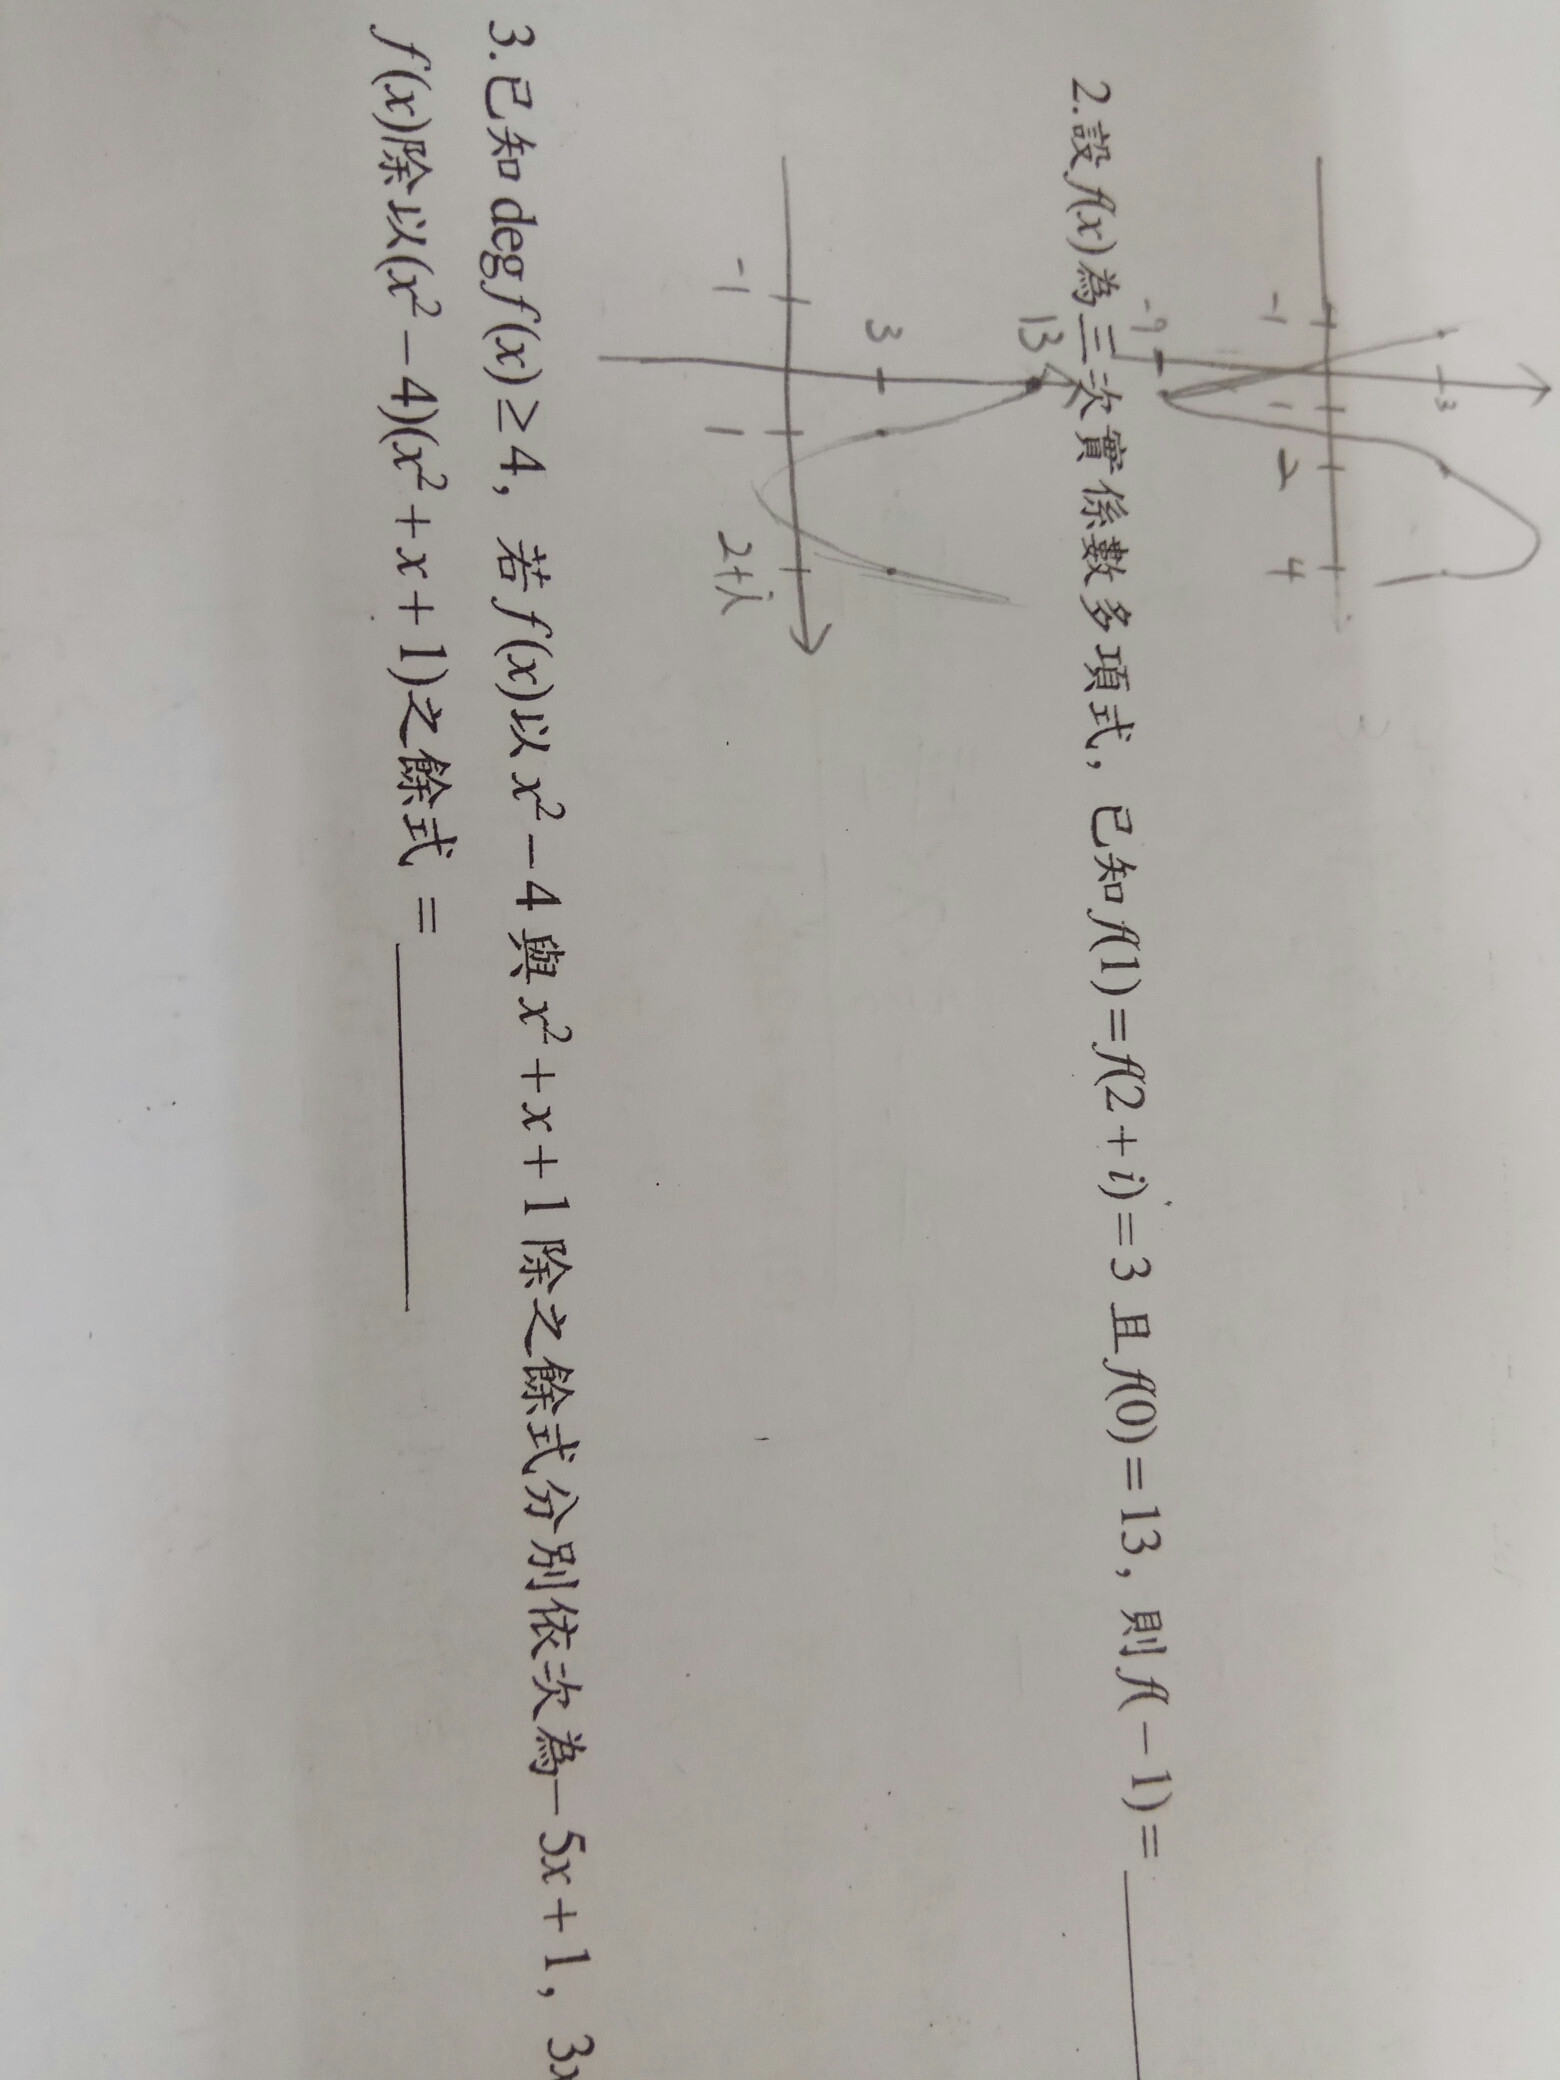 3
-1
1
2
4
-9
2.設f(x)為三次實係數多項式，已知f(1)=f(2+i)=3且f(0)=13，則f(-1)=
13
3
-1
1
2+i
3.已知deg f(x)≥4，若f(x)以x²-4與x²+x+1除之餘式分別依次為-5x+1，3x
f(x)除以(x²-4)(x²+x+1)之餘式=